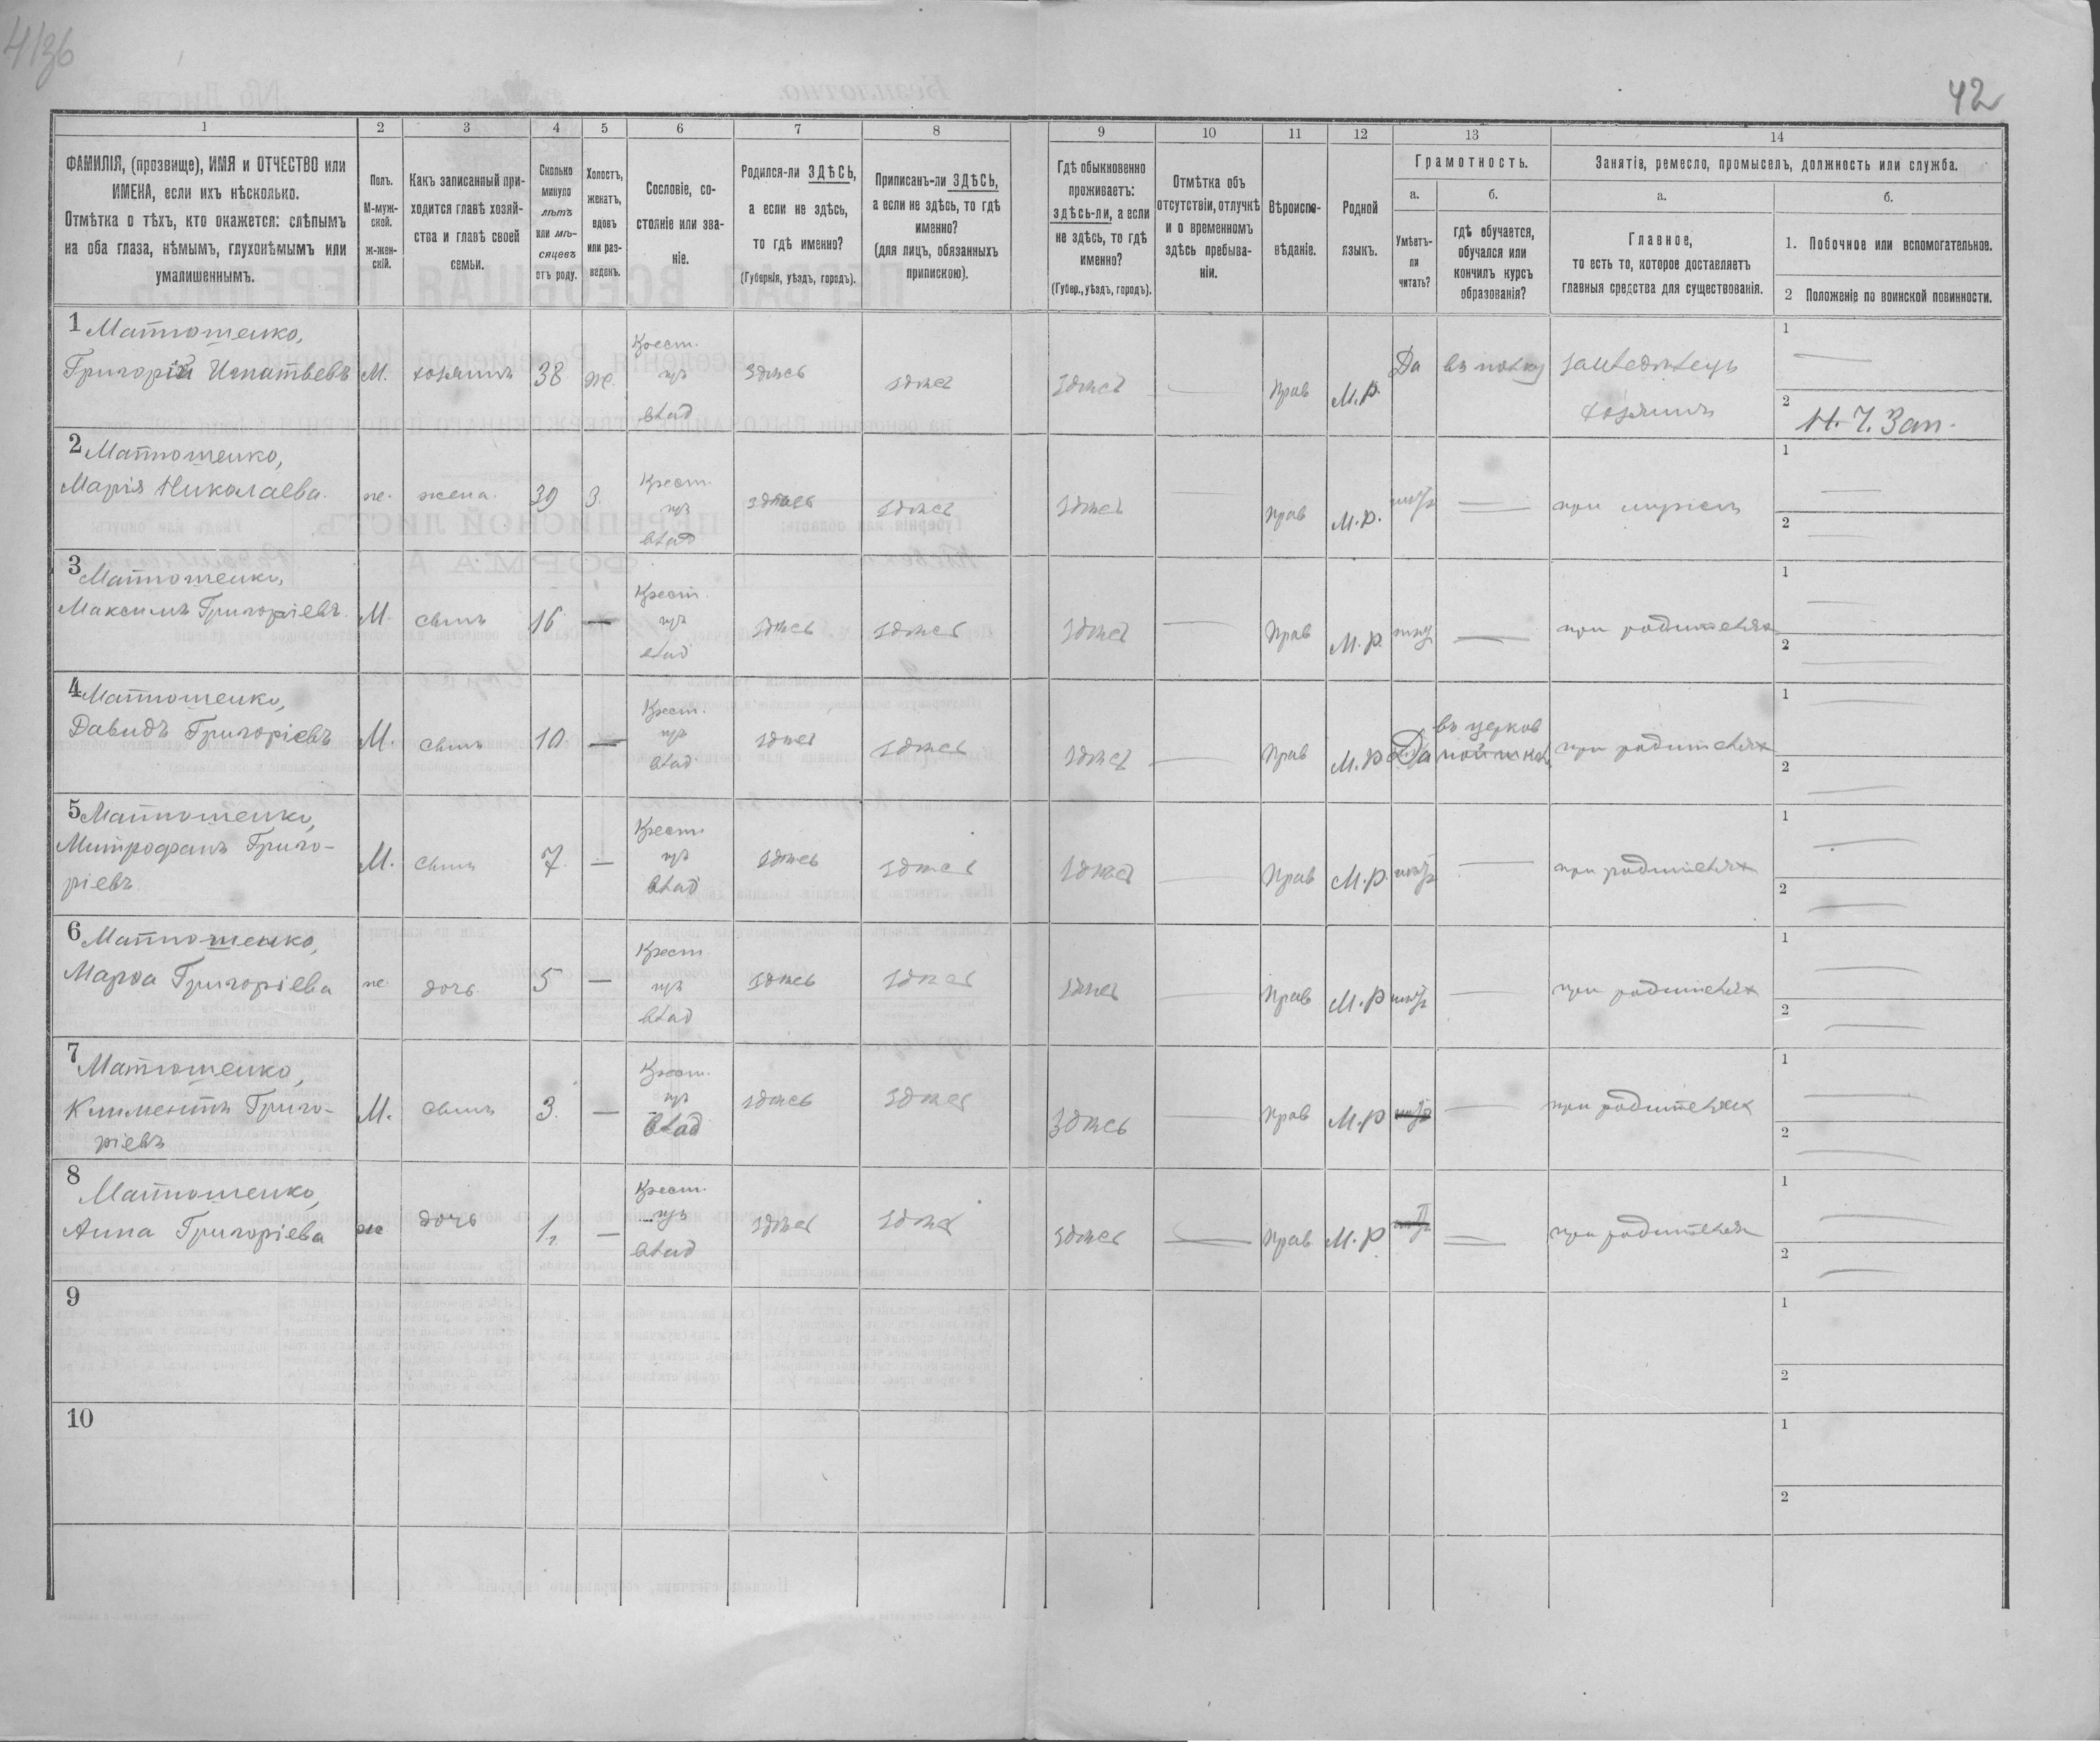 4136
42
1
2
3
4
5
6
7
8
9
10
11
12
13
14
ФАМИЛІЯ, (прозвище), ИМЯ и ОТЧЕСТВО или
ИМЕНА, если ихъ нѣсколько.
Отмѣтка о тѣхъ, кто окажется: слѣпымъ
на оба глаза, нѣмымъ, глухонѣмымъ или
умалишеннымъ.
Полъ.
М-муж-
ской.
ж-жен-
скій.
Какъ записанный при-
ходится главѣ хозяй-
ства и главѣ своей
семьи.
Сколько
минуло
лѣтъ
или мѣ-
сяцевъ
отъ роду.
Холостъ,
женатъ,
вдовъ
или раз-
веденъ.
Сословіе, со-
стояніе или зва-
ніе.
Родился-ли ЗДѢСЬ,
а если не здѣсь,
то гдѣ именно?
(Губернія, уѣздъ, городъ).
Приписанъ-ли ЗДѢСЬ,
а если не здѣсь, то гдѣ
именно?
(для лицъ, обязанныхъ
припискою).
Гдѣ обыкновенно
проживаетъ:
здѣсь-ли, а если
не здѣсь, то гдѣ
именно?
(Губер., уѣздъ, городъ).
Отмѣтка объ
отсутствіи, отлучкѣ
и о временномъ
здѣсь пребыва-
ніи.
Вѣроиспо-
вѣданіе.
Родной
языкъ.
Грамотность.
а.
б.
Умѣетъ-
ли
читать?
гдѣ обучается,
обучался или
кончилъ курсъ
образованія?
Занятія, ремесло, промыселъ, должность или служба.
а.
б.
Главное,
то есть то, которое доставляетъ
главныя средства для существованія.
1. Побочное или вспомогательное.
2 Положеніе по воинской повинности.
1 Матюшенко,
Григорій Игнатьевъ М. хозяинъ 38 же. Крест. изъ влад здѣсь здѣсь здѣсь — Прав М.Р. Да земледѣлецъ
хозяинъ
1 —
2 Н. Ч. Зап.
2 Матюшенко,
Марія Николаева. же. жена. 39 З. Крест. изъ влад здѣсь здѣсь здѣсь Прав М.Р. — при мужѣ
1 —
2 —
3 Матюшенко,
Максимъ Григоріевъ М. сынъ 16 — Крест. изъ влад здѣсь здѣсь здѣсь — Прав М.Р. — при родителях
1 —
2 —
4 Матюшенко,
Давидъ Григоріевъ М. сынъ 10 — Крест. изъ влад здѣсь здѣсь здѣсь — Прав М.Р Да въ церков
ной школ при родителях
1 —
2 —
5 Матюшенко,
Митрофанъ Григо-
ріевъ М. сынъ 7. — Крест. изъ влад здѣсь здѣсь здѣсь — Прав М.Р. — при родителях
1 —
2 —
6 Матюшенко,
Марѳа Григоріева же. дочь 5 — Крест изъ влад здѣсь здѣсь здѣсь — Прав М.Р — при родителях
1 —
2 —
7 Матюшенко,
Климентъ Григо-
ріевъ М. сынъ 3. — Крест. изъ влад здѣсь здѣсь здѣсь — Прав М.Р — при родителях
1 —
2 —
8 Матюшенко,
Анна Григоріева же дочь 1. — Крест. изъ влад здѣсь здѣсь здѣсь — Прав М.Р — при родителях
1 —
2 —
9
1
2
10
1
2